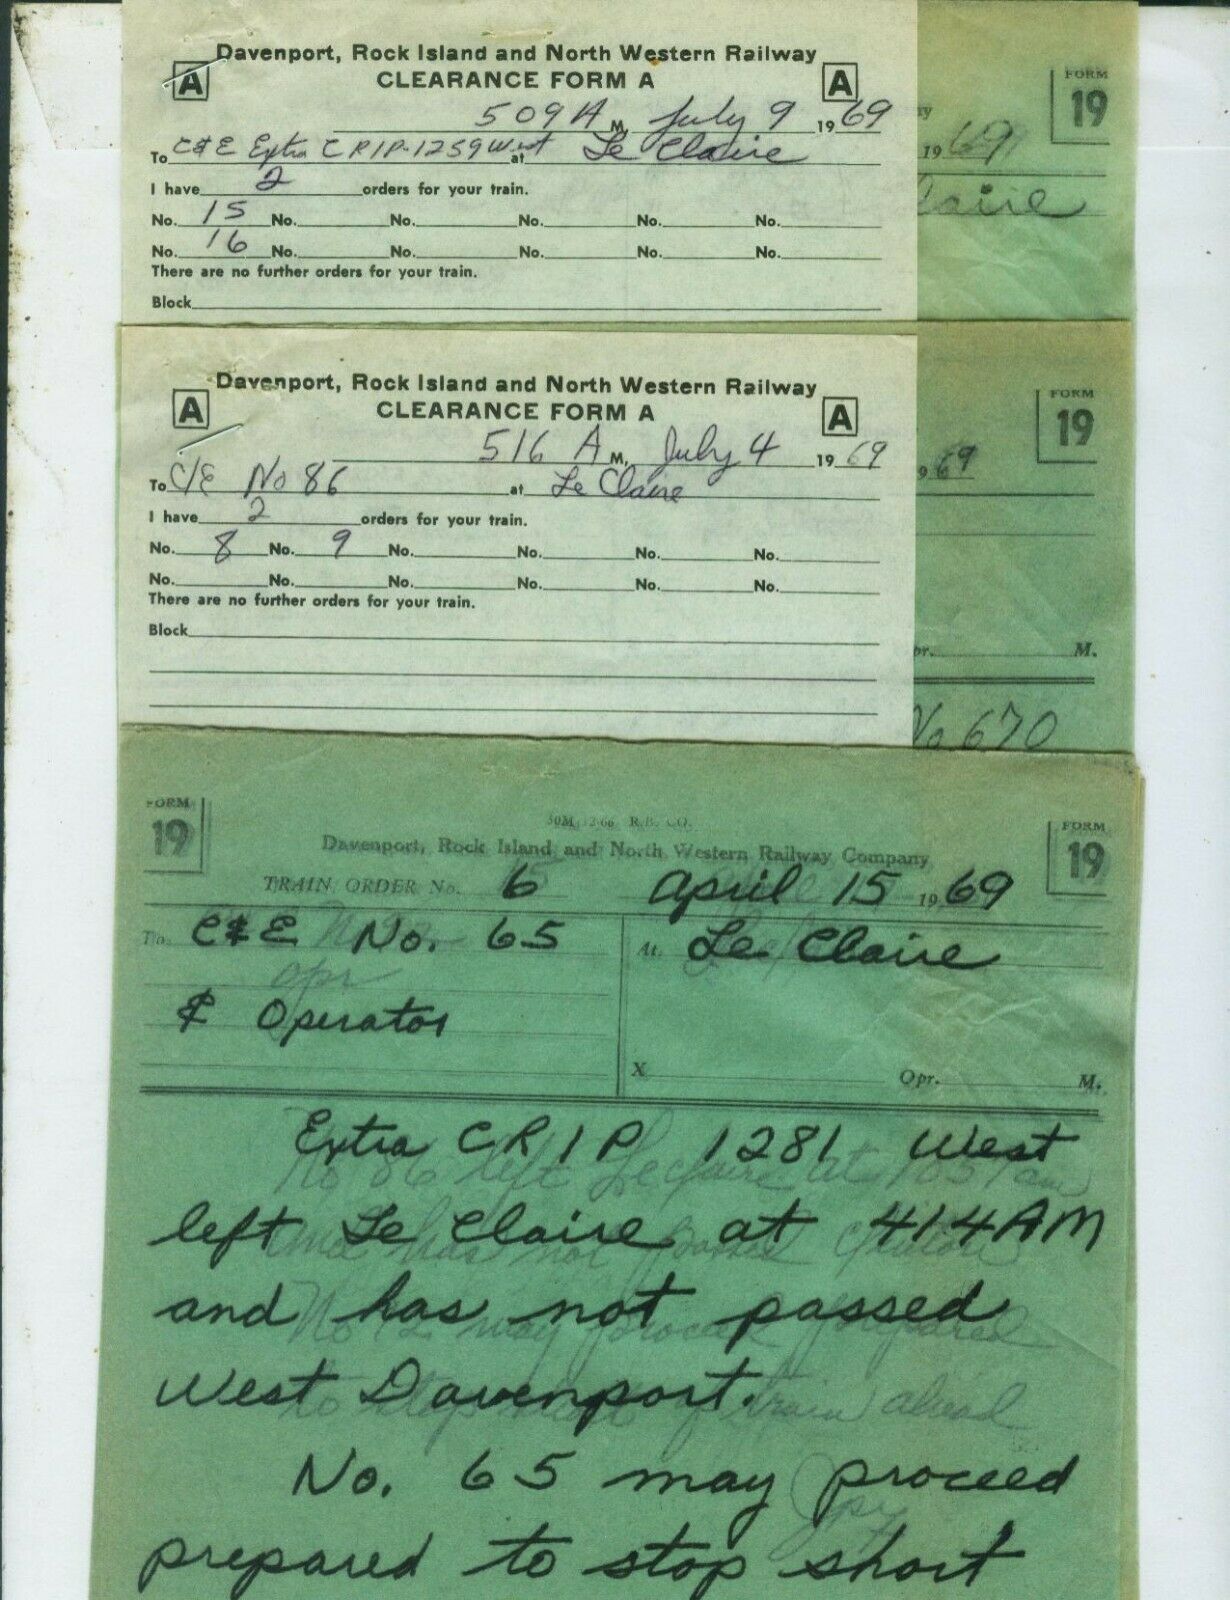 Davenport, Rock Island and North Western Railway
A CLEARANCE FORM A A
509 A M. July 9 1969
To C&E Extra CRIP-1259 West at Le Claire
I have 2 orders for your train.
No. 15 No. No. No. No. No.
No. 16 No. No. No. No. No.
There are no further orders for your train.
Block
FORM
19
1969
laire
Davenport, Rock Island and North Western Railway
A CLEARANCE FORM A A
516 A M. July 4 1969
To C/E No 86 at Le Claire
I have 2 orders for your train.
No. 8 No. 9 No. No. No. No.
No. No. No. No. No. No.
There are no further orders for your train.
Block
FORM
19
969
pr. M.
No 670
FORM
19
50M 12-66 R.B. CO.
Davenport, Rock Island and North Western Railway Company
FORM
19
TRAIN ORDER No. 6 April 15 1969
To. C&E No. 65 At. Le Claire
& Operator
X Opr. M.
Extra CRIP 1281 West
left Le Claire at 414AM
and has not passed
West Davenport.
No. 65 may proceed
prepared to stop short